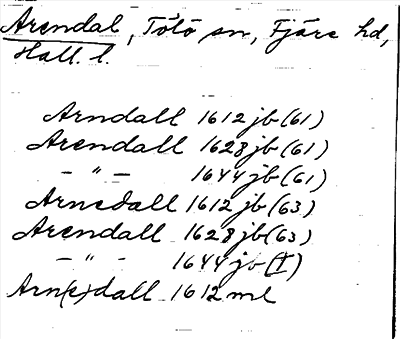 Arendal, Tölö sn, Fjäre hd,
Hall. l.
Arndall 1612 jb (61)
Arendall 1628 jb (61)
— " — 1644 jb (61)
Arnedall 1612 jb (63)
Arendall 1628 jb (63)
— " — 1644 jb (I)
Arn(e)dall 1612 ml